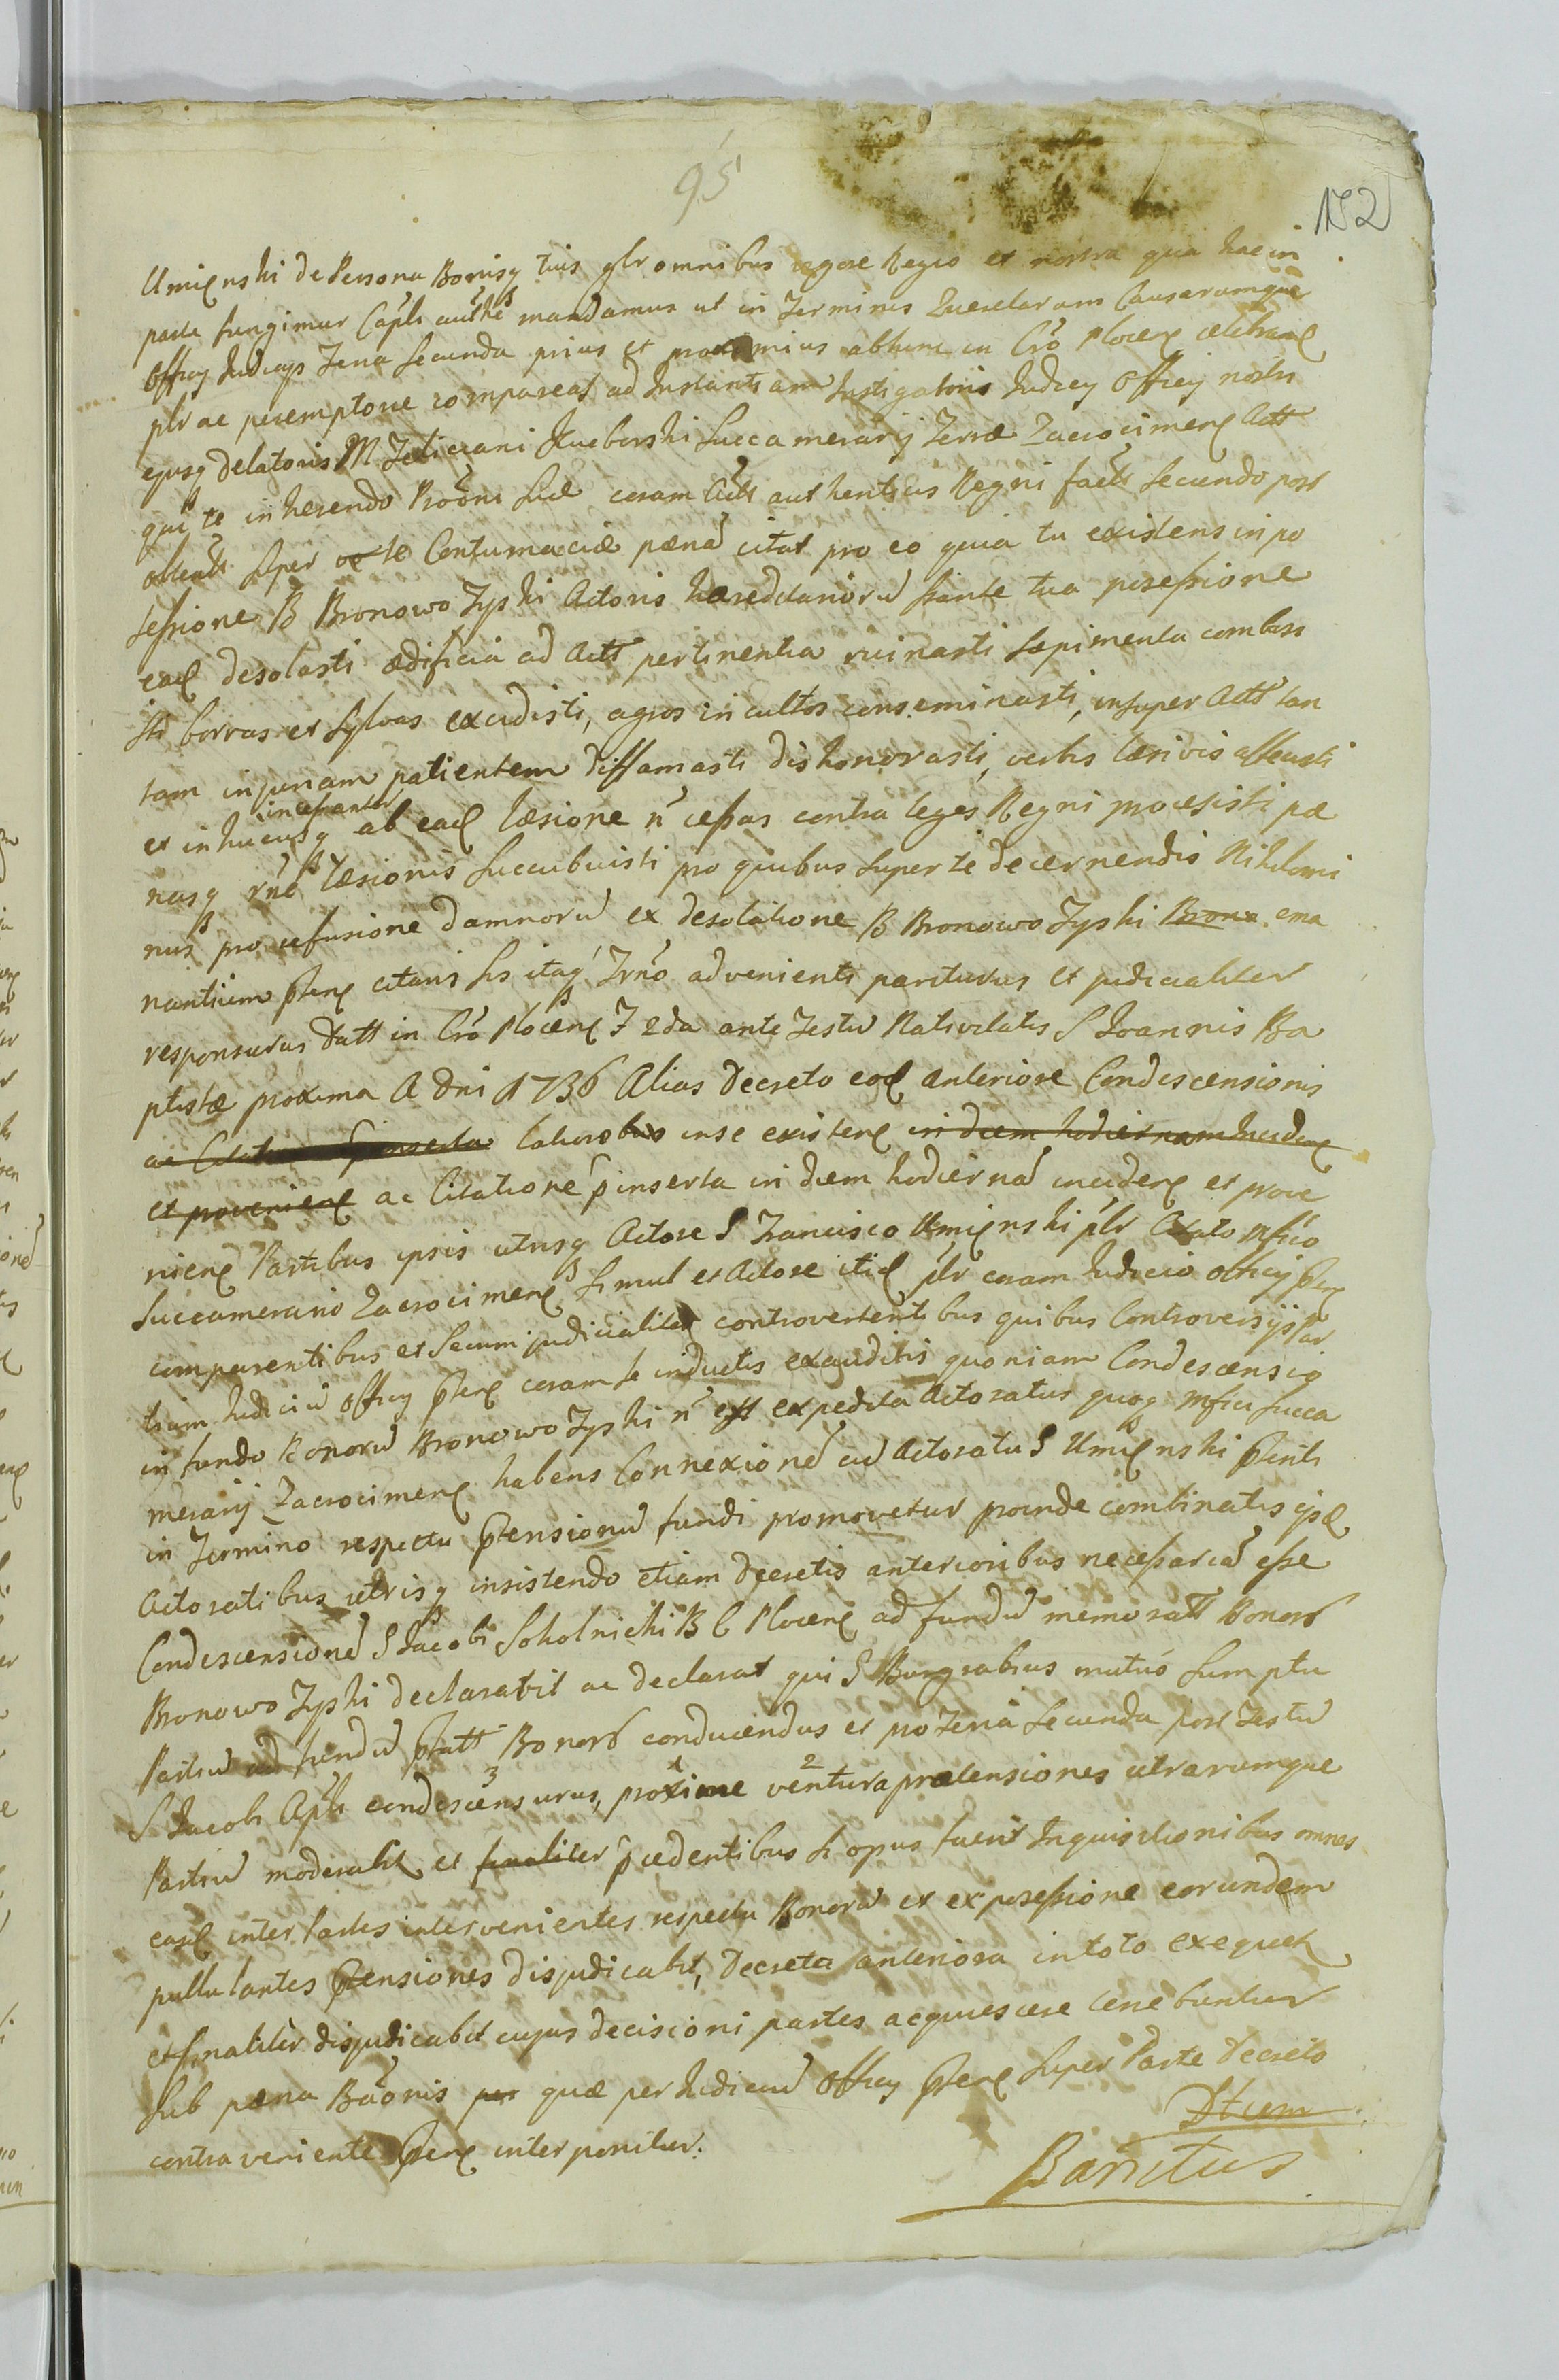 95
152
Umięnski de Persona Bonisq tuis glr omnibus vigore Regio et nostra qua hac in
parte fungimur Capli autthe mandamus ut in Terminis Querelarum Causarumque
Officij Judicijs Feria Secunda prius et proximius abhinc in Cro Plocen celebran
plr ac peremptorie compareas ad Instantiam Instigatoris Judicij Officij nostri
ejusq Delatoris M Feliciani Kucborski Succamerarij Terræ Zacrocimen Actt
qui te inhærendo Prõni suæ coram Actt authenticis Regni factæ secundo post
obtent super te Contumaciæ pænã citat pro eo quia tu existens in po
ssessione B Bronowo Zyski Actoris hæreditariorũ stante tua possessione
ead desolasti ædificia ad Actt pertinentia ruinasti sæpimenta combus
sti borras et sylvas excidisti, agros incultos conseminasti, insuper Actt tan
tam injuriam patientem diffamasti dishonorasti, verbis læsivis affecasti
et in hucusq incessanter ab ead læsione ñ cessas contra leges Regni processisti pæ
nasq rñe læsionis succubuisti pro quibus super te decernendis Nihilomi
nus pro refusione damnorũ ex desolatione B Bronowo Zyski Brono ema
nantium pten citaris sis itaq Trño advenienti pariturus et judicialiter
responsurus Datt in Cro Plocen F 2da ante Festũ Nativitatis S Joannis Ba
ptistæ proxima A Dni 1736 Alias Decreto eod anteriore Condescensionis
ac Citatione pinserta laborobus in se existen in diem hodiernam inciden
et provenien ac Citatione pinserta in diem hodiernã inciden et prove
nien Partibus ipsis utrisq Actore S Francisco Umięnski plr Citato Mfico
Succamerario Zacrocimen simul et Actore itid plr coram Judicio officij pten
comparentibus et secum judicialiter controvertentibus quibus Controversijs Par
tium Judiciũ Officij pten coram se inductis exauditis quoniam Condescensio
in fundo Bonorũ Bronowo Zyski ñ est expedita Actoratus quoq Mfici Succa
merarij Zacrocimen habens Connexionẽ cũ Actoratu S Umięnski ptenti
in Termino respectu ptensionũ fundi promovetur proinde combinatis ijsd
Actoratibus utrisq insistendo etiam Decretis anterioribus necessariã esse
Condescensionẽ S Jacobi Sokolnicki B C Plocen ad fundũ memoratt Bonorũ
Bronowo Zyski declarabit ac declarat qui S Burgrabius mutuo sumptu
Partiũ ad fundũ ptatt Bonorũ conducendus et pro Feria Secunda post Festũ
S Jacobi Apli 3 condescensurus, 1 proxime 2 ventura prætensiones utrarumque
Partiũ moderabit et finaliter pcedentibus si opus fuerit Inquisitionibus omnes
easd inter Partes intervenientes respectu Bonorũ et ex possessione eorundem
pullulantes ptensiones disjudicabit, Decreta anteriora in toto exequet
et finaliter disjudicabit cujus decisioni partes acquiescere tenebuntur
sub pæna Bãonis per quæ per Judiciũ Officij pten super Parte Decreto
contraveniente pten interponitur.
Dtum
Banitus